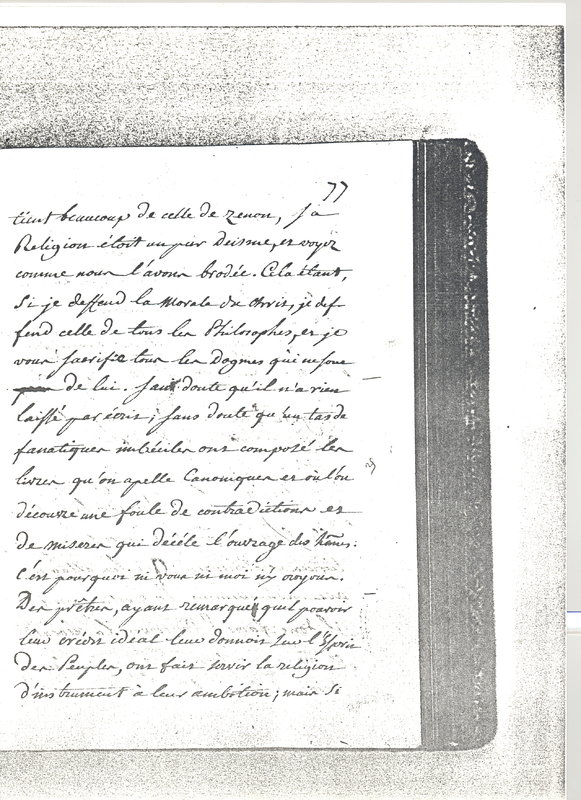 77
tient beaucoup de celle de zenon, sa
Religion étoit un pur Deisme, et voyez
comme nous l'avons brodée. Cela étant,
Si je deffend la Morale du Christ, je def-
fend celle de tous les Philosophes, et je
vous sacrifie tous les Dogmes qui ne sont
de lui. Sans doute qu'il n'a rien
laissé par écrit; sans doute qu'un tas de
fanatiques imbéciles ont composé les
livres qu'on apelle Canoniques et où l'on
découvre une foule de contradictions et
de miseres qui décéle l'ouvrage des hães.
C'est pourquoi ni vous ni moi n'y croyons.
Des prêtres, ayant remarqué quel pouvoir
leur crédit idéal leur donnoit sur l'Esprit
des Peuples, ont fait servir la religion
d'instrument a leur ambition; mais si